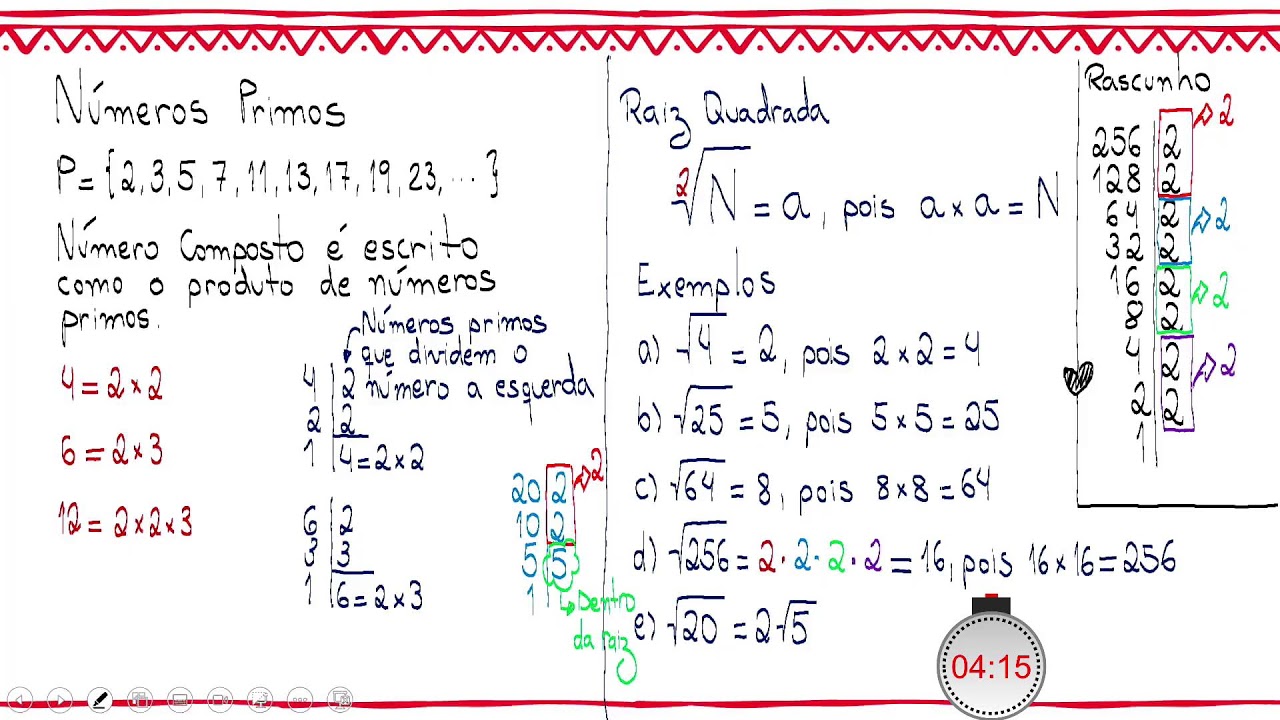 Números Primos
P = {2, 3, 5, 7, 11, 13, 17, 19, 23, ... }
Número Composto é escrito
como o produto de números
primos.
4 = 2 × 2
6 = 2 × 3
12 = 2 × 2 × 3
Números primos
que dividem o
número a esquerda
4 | 2
2 | 2
1 | 4 = 2 × 2
6 | 2
3 | 3
1 | 6 = 2 × 3
20 | 2 ⇨ 2
10 | 2
5 | 5
1 |
↳ Dentro
da raiz
Raiz Quadrada
²√N = a, pois a × a = N
Exemplos
a) √4 = 2, pois 2 × 2 = 4
b) √25 = 5, pois 5 × 5 = 25
c) √64 = 8, pois 8 × 8 = 64
d) √256 = 2 · 2 · 2 · 2 = 16, pois 16 × 16 = 256
e) √20 = 2√5
Rascunho
256 | 2 ⇨ 2
128 | 2
64 | 2 ⇨ 2
32 | 2
16 | 2 ⇨ 2
8 | 2
4 | 2 ⇨ 2
2 | 2
1 |
04:15